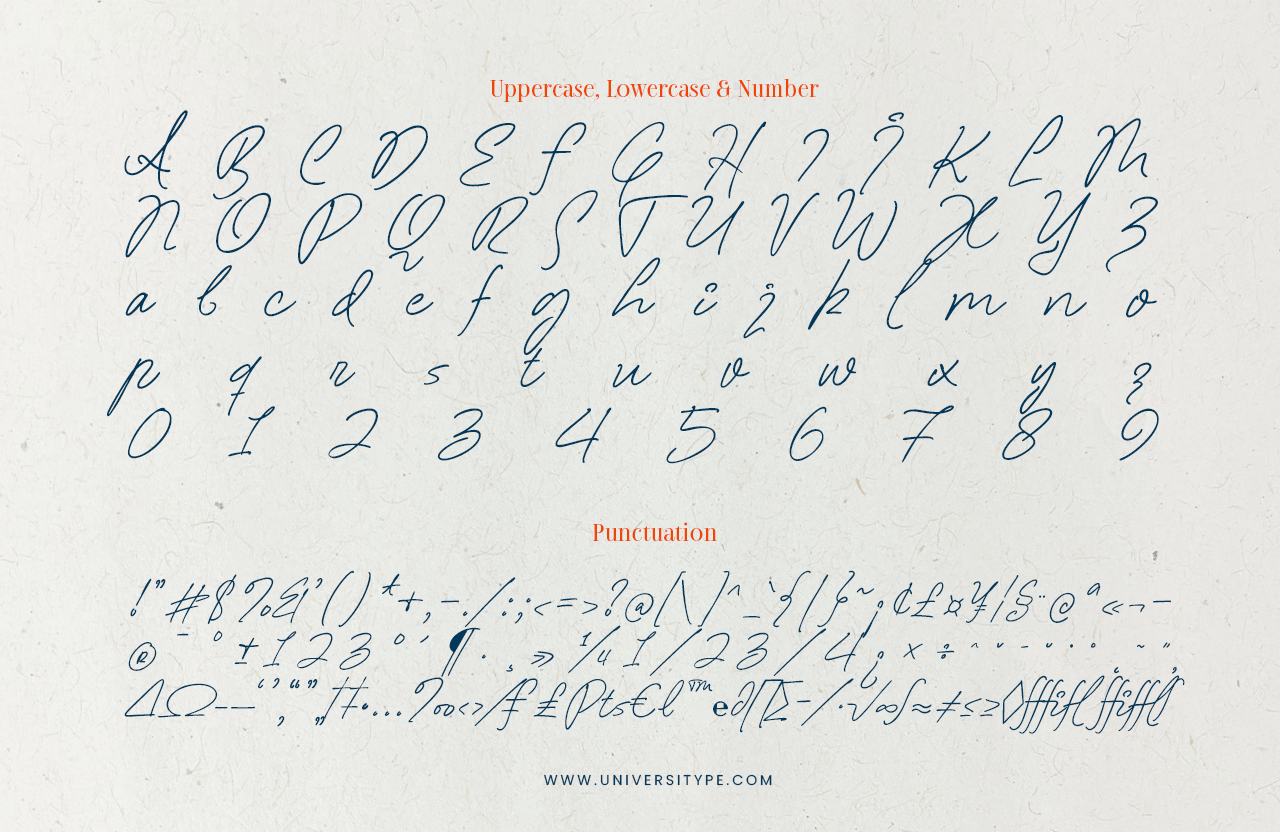 Uppercase, Lowercase & Number
A B C D E F G H I J K L M
N O P Q R S T U V W X Y Z
a b c d e f g h i j k l m n o
p q r s t u v w x y z
0 1 2 3 4 5 6 7 8 9
Punctuation
!"#$%&'()*+,-./:;<=>?@[\]^_`{|}~¡¢£¤¥¦§¨©ª«¬-
®¯°±123°´¶·¸»1/41/23/4¿×÷
ΔΩ–—‘’‚“”„‡•…‰‹›/₣₤₧€ℓ™℮∂∏∑−∕∙√∞∫≈≠≤≥◊
WWW.UNIVERSITYPE.COM